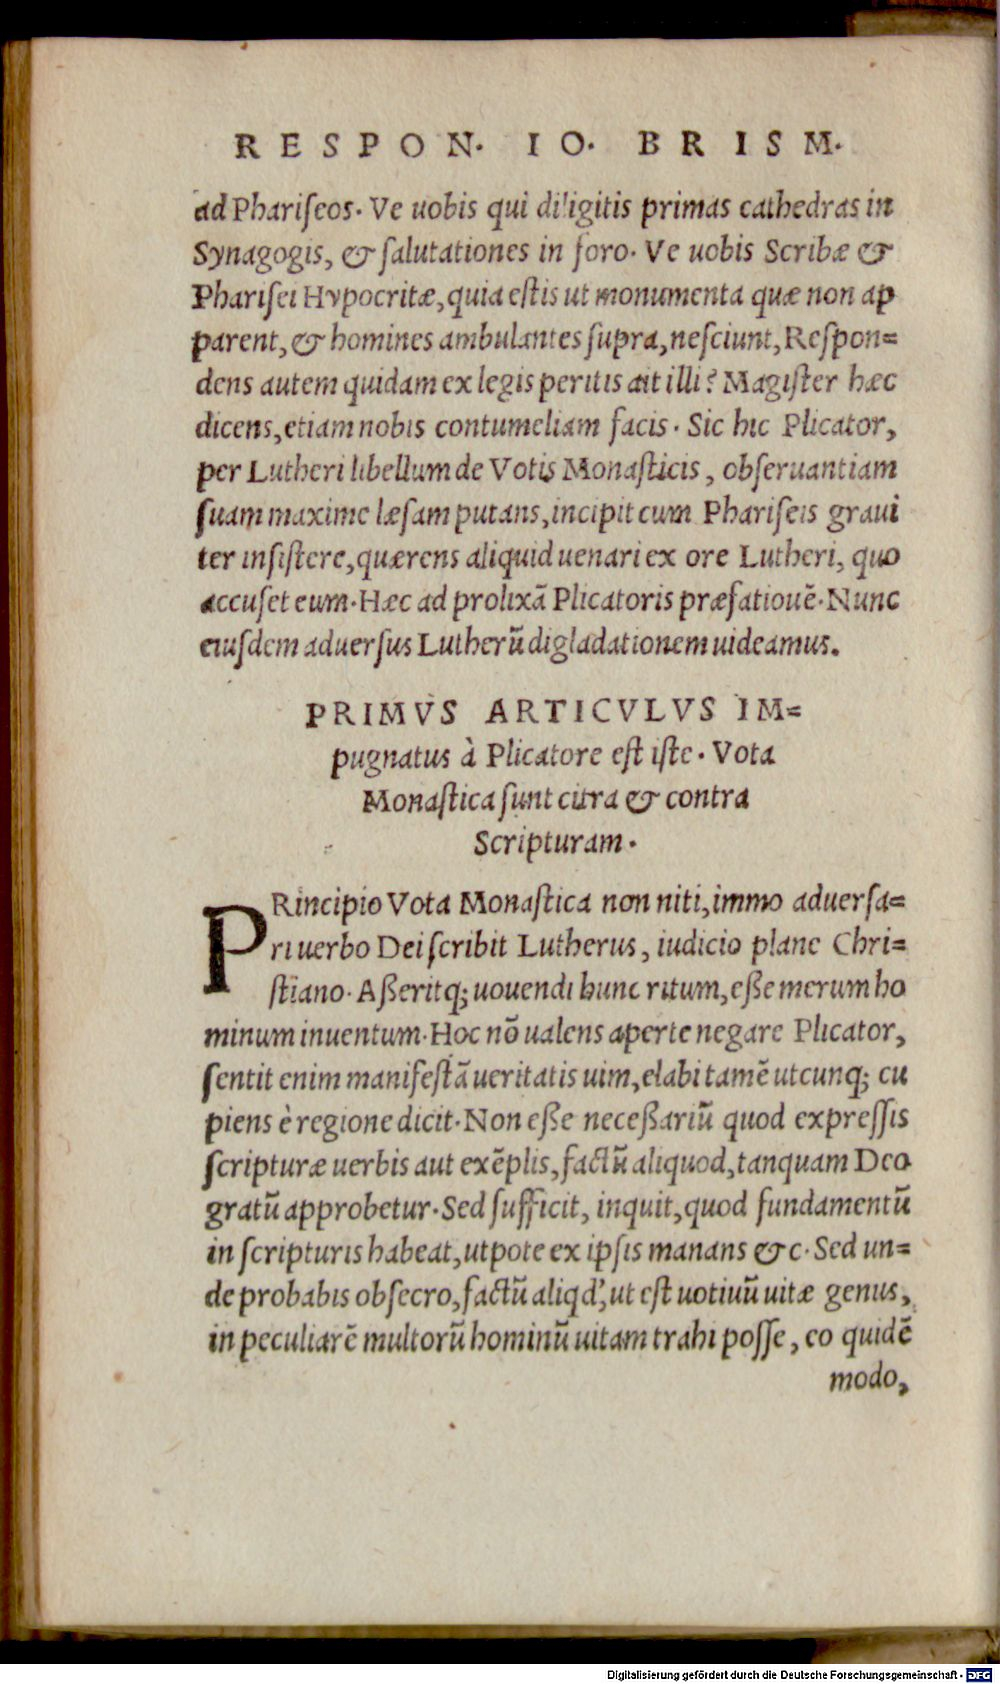 RESPON. IO. BRISM.
ad Phariſeos. Ve uobis qui diligitis primas cathedras in
Synagogis, & ſalutationes in foro. Ve uobis Scribæ &
Phariſei Hypocritæ, quia eſtis ut monumenta quæ non ap
parent, & homines ambulantes ſupra, neſciunt, Reſpon=
dens autem quidam ex legis peritis ait illi? Magiſter hæc
dicens, etiam nobis contumeliam facis. Sic hic Plicator,
per Lutheri libellum de Votis Monaſticis, obſeruantiam
ſuam maxime læſam putans, incipit cum Phariſeis graui
ter inſiſtere, quærens aliquid uenari ex ore Lutheri, quo
accuſet eum. Hæc ad prolixã Plicatoris præfatiouẽ. Nunc
eiuſdem aduerſus Lutherũ digladationem uideamus.
PRIMVS ARTICVLVS IM=
pugnatus à Plicatore eſt iſte. Vota
Monaſtica ſunt citra & contra
Scripturam.
PRincipio Vota Monaſtica non niti, immo aduerſa=
ri uerbo Dei ſcribit Lutherus, iudicio plane Chri=
ſtiano. Aßeritq; uouendi hunc ritum, eße merum ho
minum inuentum. Hoc nõ ualens aperte negare Plicator,
ſentit enim manifeſtã ueritatis uim, elabi tamẽ utcunq; cu
piens è regione dicit. Non eße neceßariũ quod expreſſis
ſcripturæ uerbis aut exẽplis, factũ aliquod, tanquam Deo
gratũ approbetur. Sed ſufficit, inquit, quod fundamentũ
in ſcripturis habeat, utpote ex ipſis manans &c. Sed un=
de probabis obſecro, factũ aliqd', ut eſt uotiuũ uitæ genus,
in peculiarẽ multorũ hominũ uitam trahi poſſe, eo quidẽ
modo,
Digitalisierung gefördert durch die Deutsche Forschungsgemeinschaft - DFG